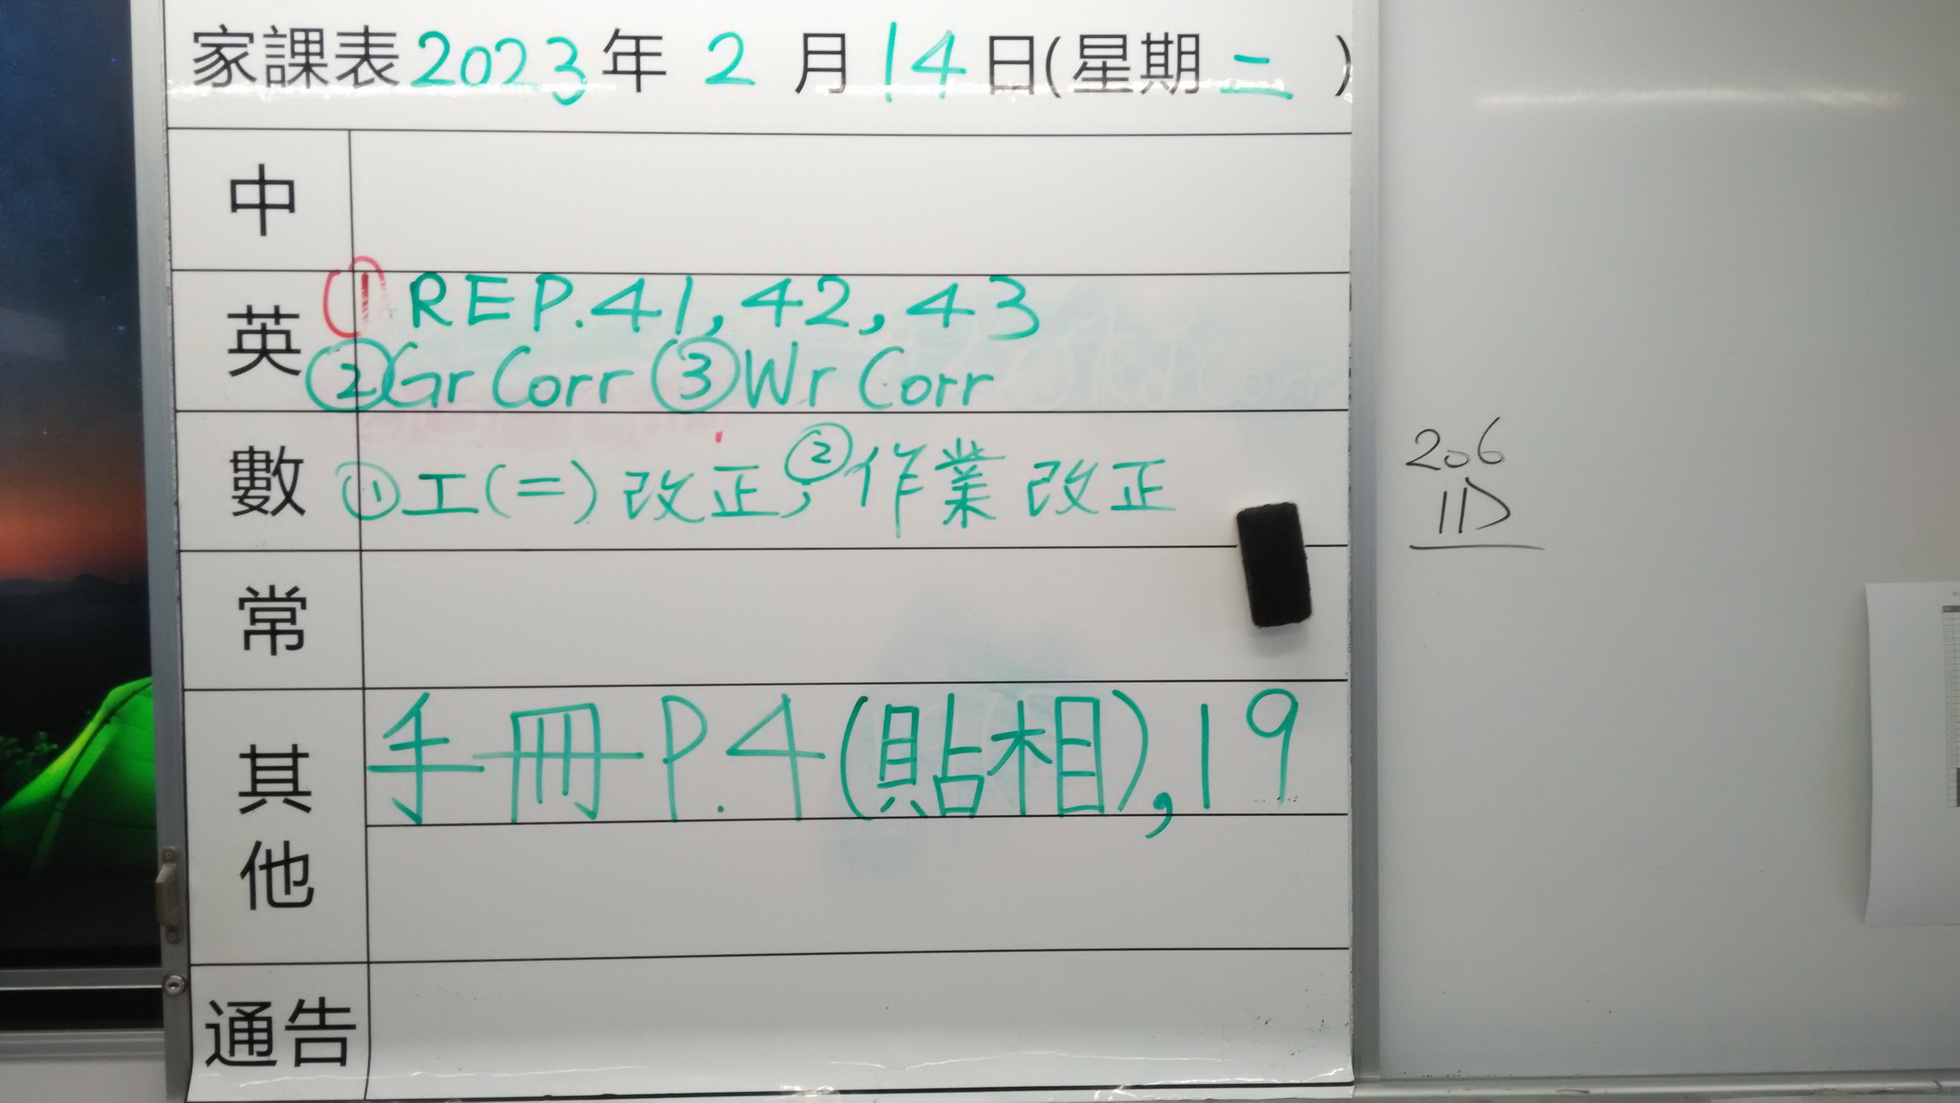 家課表2023年 2 月14日(星期二 )
中
英
① REP.41,42,43
②Gr Corr ③Wr Corr
數
①工(二)改正,②作業改正
常
其他
手冊P.4(貼相),19
通告
206